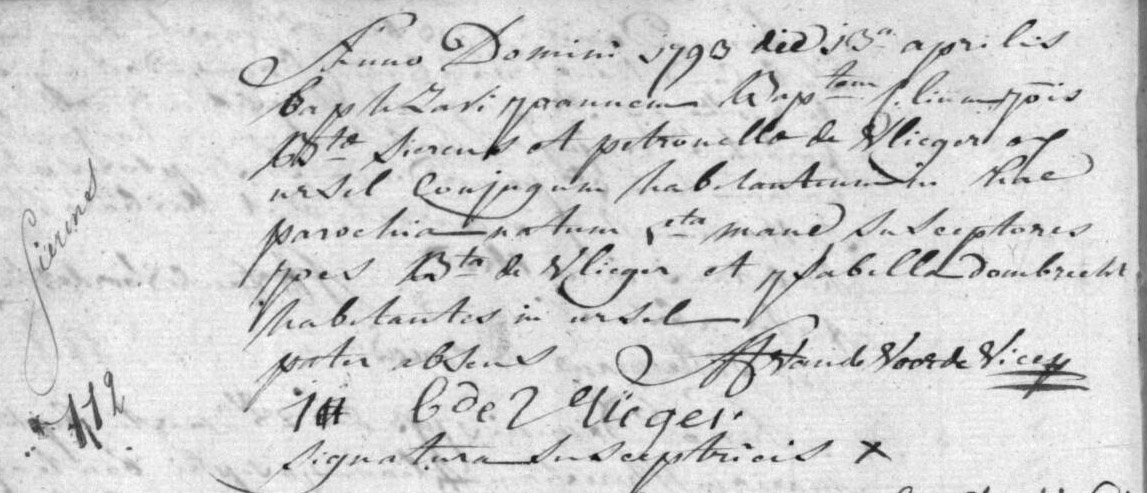 Anno Domini 1793 die 13a aprilis
baptizavi joannem Baptam filium jois
Bta sierens et petronella de Vlieger ex
ursel Conjugum habitantium in hac
parochia natum 5ta mane susceptores
joes Bta de Vlieger et ysabella dombrecht
habitantes in ursel
pater absens Vande Voorde Vicep
J B de Vlieger
signatura susceptricis x
sierens